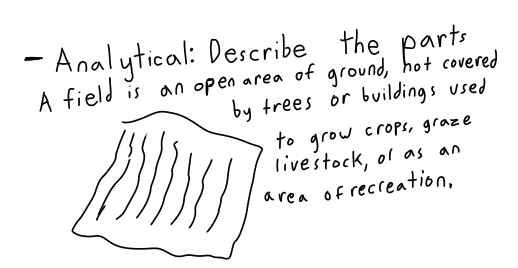 - Analytical: Describe the parts
A field is an open area of ground, not covered
by trees or buildings used
to grow crops, graze
livestock, or as an
area of recreation.